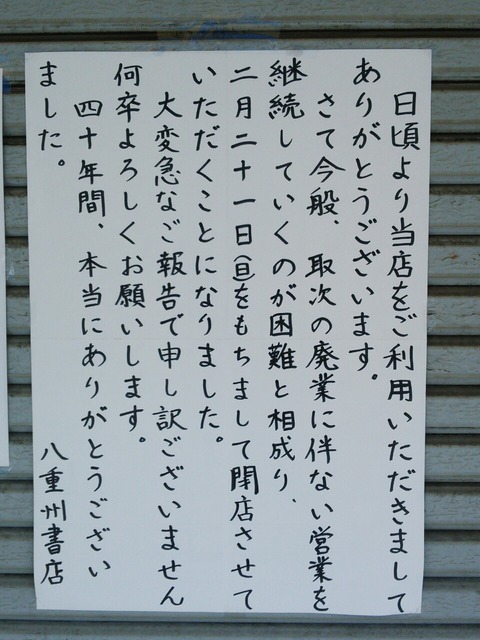 日頃より当店をご利用いただきまして
ありがとうございます。
さて今般、取次の廃業に伴ない営業を
継続していくのが困難と相成り、
二月二十一日(日)をもちまして閉店させて
いただくことになりました。
大変急なご報告で申し訳ございません
何卒よろしくお願いします。
四十年間、本当にありがとうござい
ました。
八重州書店